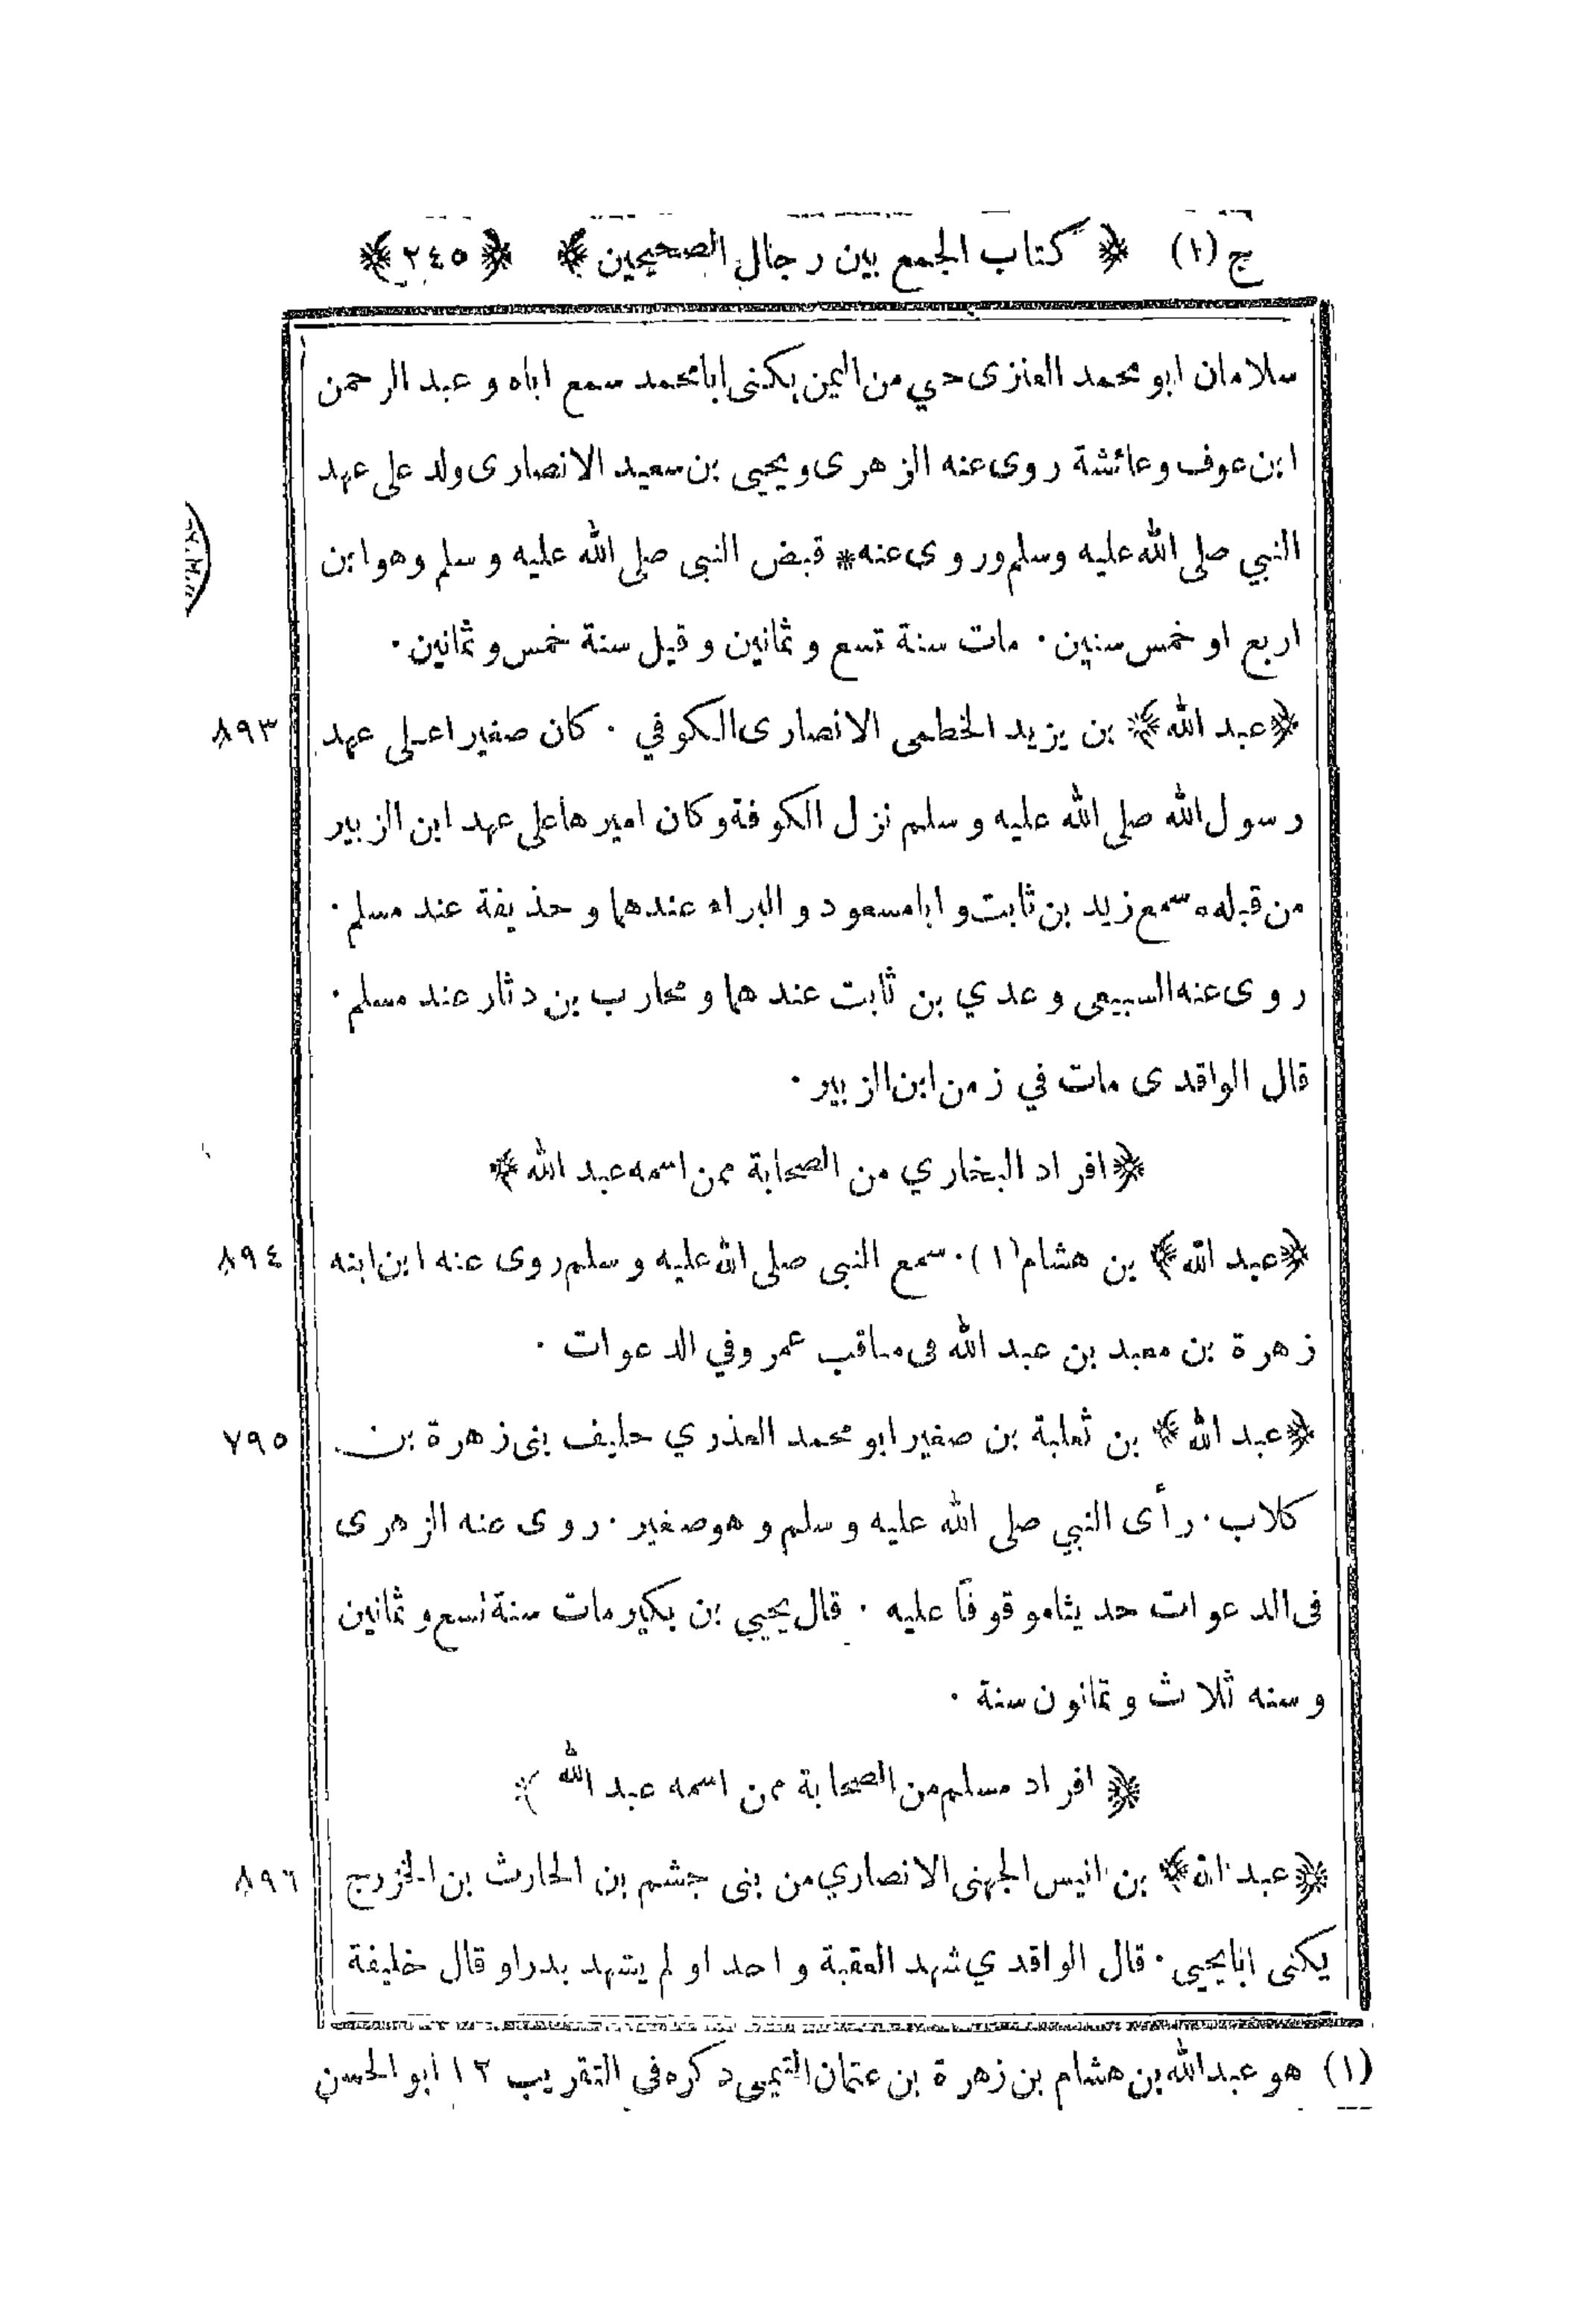 ج (١) ﴿ كتاب الجمع بين رجال الصحيحين ﴾ ﴿ ٢٤٥ ﴾
سلامان ابو محمد العنزى حي من اليمن يكنى ابا محمد سمع اباه و عبد الرحمن
ابن عوف وعائشة روى عنه الزهرى ويحيى بن سعيد الانصارى ولد على عهد
النبي صلى الله عليه وسلم وروى عنه * قبض النبى صلى الله عليه وسلم وهو ابن
اربع او خمس سنين · مات سنة تسع و ثمانين و قيل سنة خمس و ثمانين ·
﴿ عبد الله ﴾ بن يزيد الخطمى الانصارى الكوفي · كان صغيرا على عهد ٨٩٣
رسول الله صلى الله عليه وسلم نزل الكوفة وكان اميرها على عهد ابن الزبير
من قبله · سمع زيد بن ثابت و ابا مسعود و البراء عندهما و حذيفة عند مسلم ·
روى عنه السبيعى و عدي بن ثابت عندهما و محارب بن دثار عند مسلم ·
قال الواقدى مات في زمن ابن الزبير ·
﴿ افراد البخاري من الصحابة ممن اسمه عبد الله ﴾
﴿ عبد الله ﴾ بن هشام (١) · سمع النبى صلى الله عليه وسلم روى عنه ابن ابنه ٨٩٤
زهرة بن معبد بن عبد الله فى مناقب عمر وفي الدعوات ·
﴿ عبد الله ﴾ بن ثعلبة بن صغير ابو محمد العذري حليف بنى زهرة بن ٧٩٥
كلاب · رأى النبي صلى الله عليه وسلم و هو صغير · روى عنه الزهرى
فى الدعوات حديثا موقوفاً عليه · قال يحيى بن بكير مات سنة تسع و ثمانين
و سنه ثلاث و ثمانون سنة ·
﴿ افراد مسلم من الصحابة ممن اسمه عبد الله ﴾
﴿ عبد الله ﴾ بن انيس الجهنى الانصاري من بنى جشم بن الحارث بن الخزرج ٨٩٦
يكنى ابا يحيى · قال الواقدي شهد العقبة و احدا و لم يشهد بدرا و قال خليفة
(١) هو عبد الله بن هشام بن زهرة بن عثمان التيمى ذكره فى التقريب ١٢ ابو الحسن